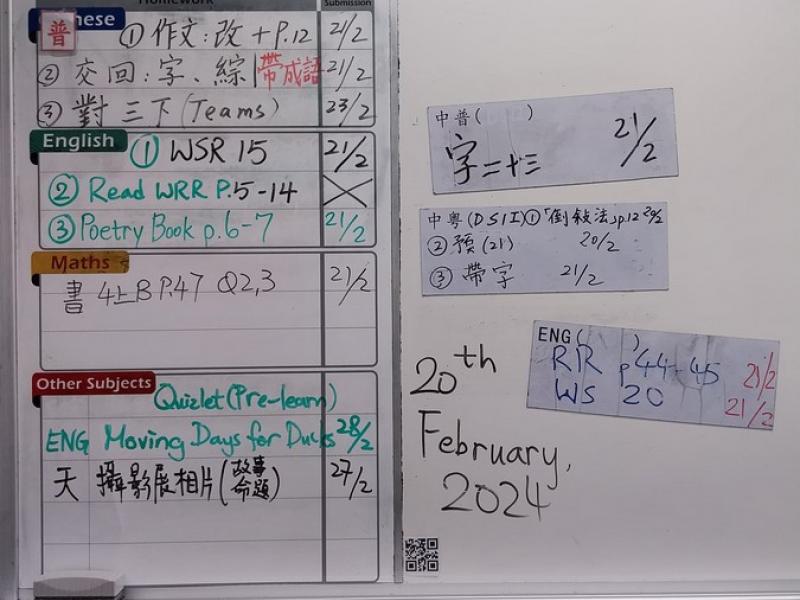 Homework
Submission
Chinese
普 ① 作文：改 + P.12 21/2
② 交回：字、綜 帶成語 21/2
③ 對 三下 (Teams) 23/2
English
① WSR 15 21/2
② Read WRR P.5-14
③ Poetry Book p.6-7 21/2
Maths
書 4上B P.47 Q2,3 21/2
Other Subjects
Quizlet (Pre-learn)
ENG Moving Days for Ducks 28/2
天 攝影展相片 (故事命題) 27/2
中普( )
字 二十三 21/2
中粵(DSII) ①「倒敘法」p.12 20/2
② 預 (21) 20/2
③ 帶字 21/2
ENG( )
RR p44-45 21/2
WS 20 21/2
20th
February,
2024